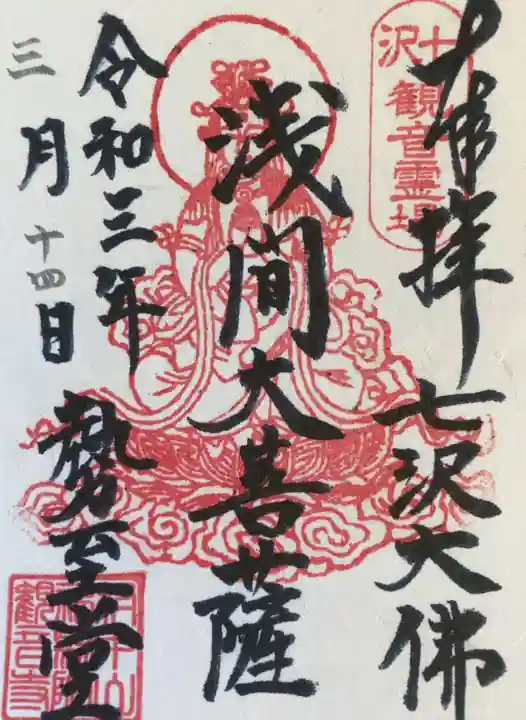 奉拝
七沢大佛
七沢
観音霊場
浅間大菩薩
令和三年
三月十四日
勢至堂
観音寺